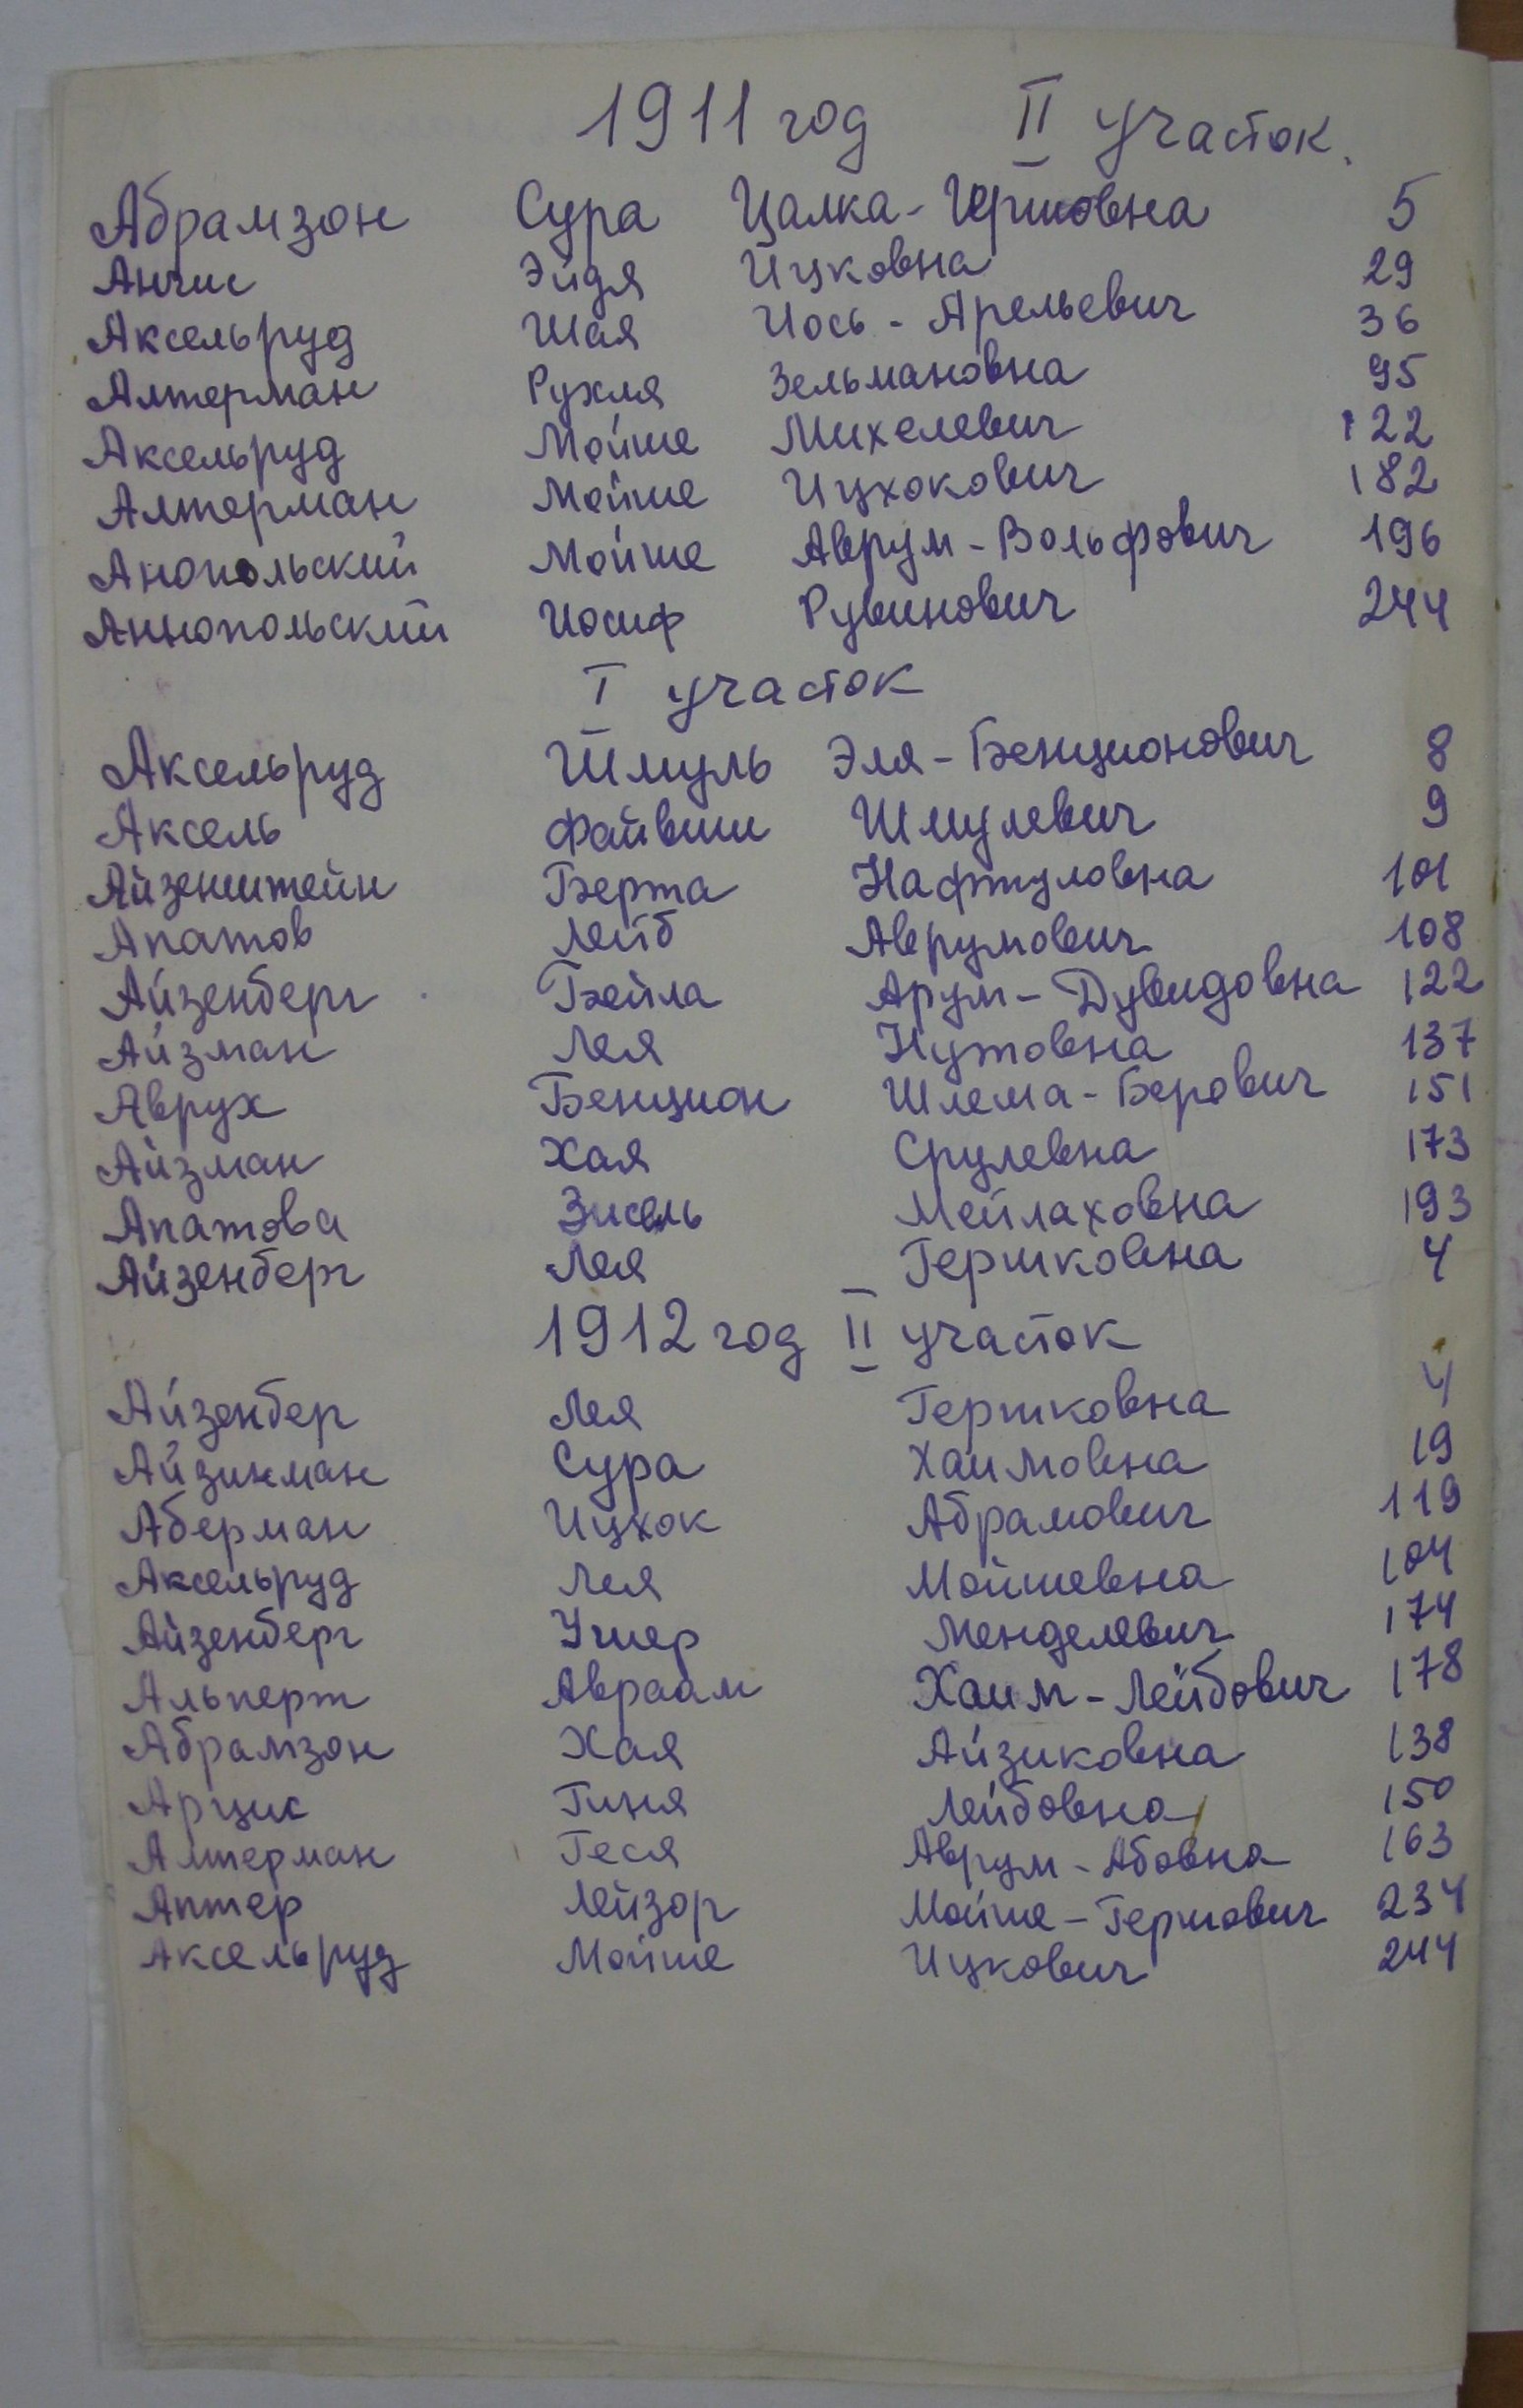 1911 год II участок.
Абрамзон Сура Цалка-Гершовна 5
Анчис Эйдя Ицковна 29
Аксельруд Шая Иось-Арельевич 36
Алтерман Рухля Зельмановна 95
Аксельруд Мойше Михелевич 122
Алтерман Мойше Ицхокович 182
Анопольский Мойше Аврум-Вольфович 196
Аннопольский Иосиф Рувинович 244
I участок
Аксельруд Шмуль Эля-Бенционович 8
Аксель Файвиш Шмулевич 9
Айзенштейн Берта Нафтуловна 101
Апатов Лейб Аврумович 108
Айзенберг Бейла Арум-Дувидовна 122
Айзман Лея Нутовна 137
Аврух Бенцион Шлема-Берович 151
Айзман Хая Срулевна 173
Апатова Зисель Мейлаховна 193
Айзенберг Лея Гершковна 4
1912 год II участок
Айзенбер Лея Гершковна 4
Айзикман Сура Хаимовна 19
Аберман Ицхок Абрамович 119
Аксельруд Лея Мойшевна 104
Айзенберг Ушер Менделевич 174
Альперт Авраам Хаим-Лейбович 178
Абрамзон Хая Айзиковна 138
Арцис Гиня Лейбовна 150
Алтерман Геся Аврум-Абовна 163
Аптер Лейзор Мойше-Гершович 234
Аксельруд Мойше Ицкович 244